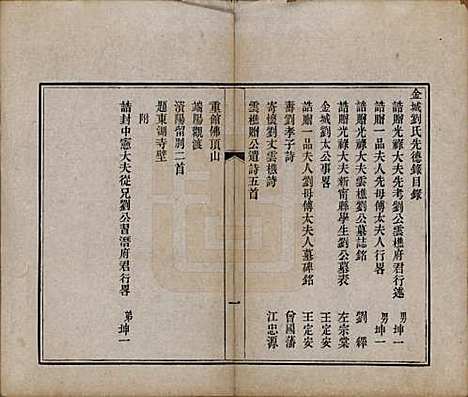 金城劉氏先德錄目錄
誥贈光祿大夫先考劉公雲樵府君行述 男坤一
誥贈一品夫人先母傅太夫人行畧 男坤一
誥贈光祿大夫雲樵劉公墓誌銘 劉繹
誥贈光祿大夫新甯縣學生劉公墓表 左宗棠
金城劉太公事畧 王定安
誥贈一品夫人劉母傅太夫人墓碑銘 王定安
壽劉孝子詩 曾國藩
寄懷劉丈雲樵詩 江忠源
雲樵贈公遺詩五首
重館佛頂山
端陽觀渡
濱陽留別二首
題東湖寺壁
附
誥封中憲大夫從兄劉公習潛府君行畧 弟坤一
一